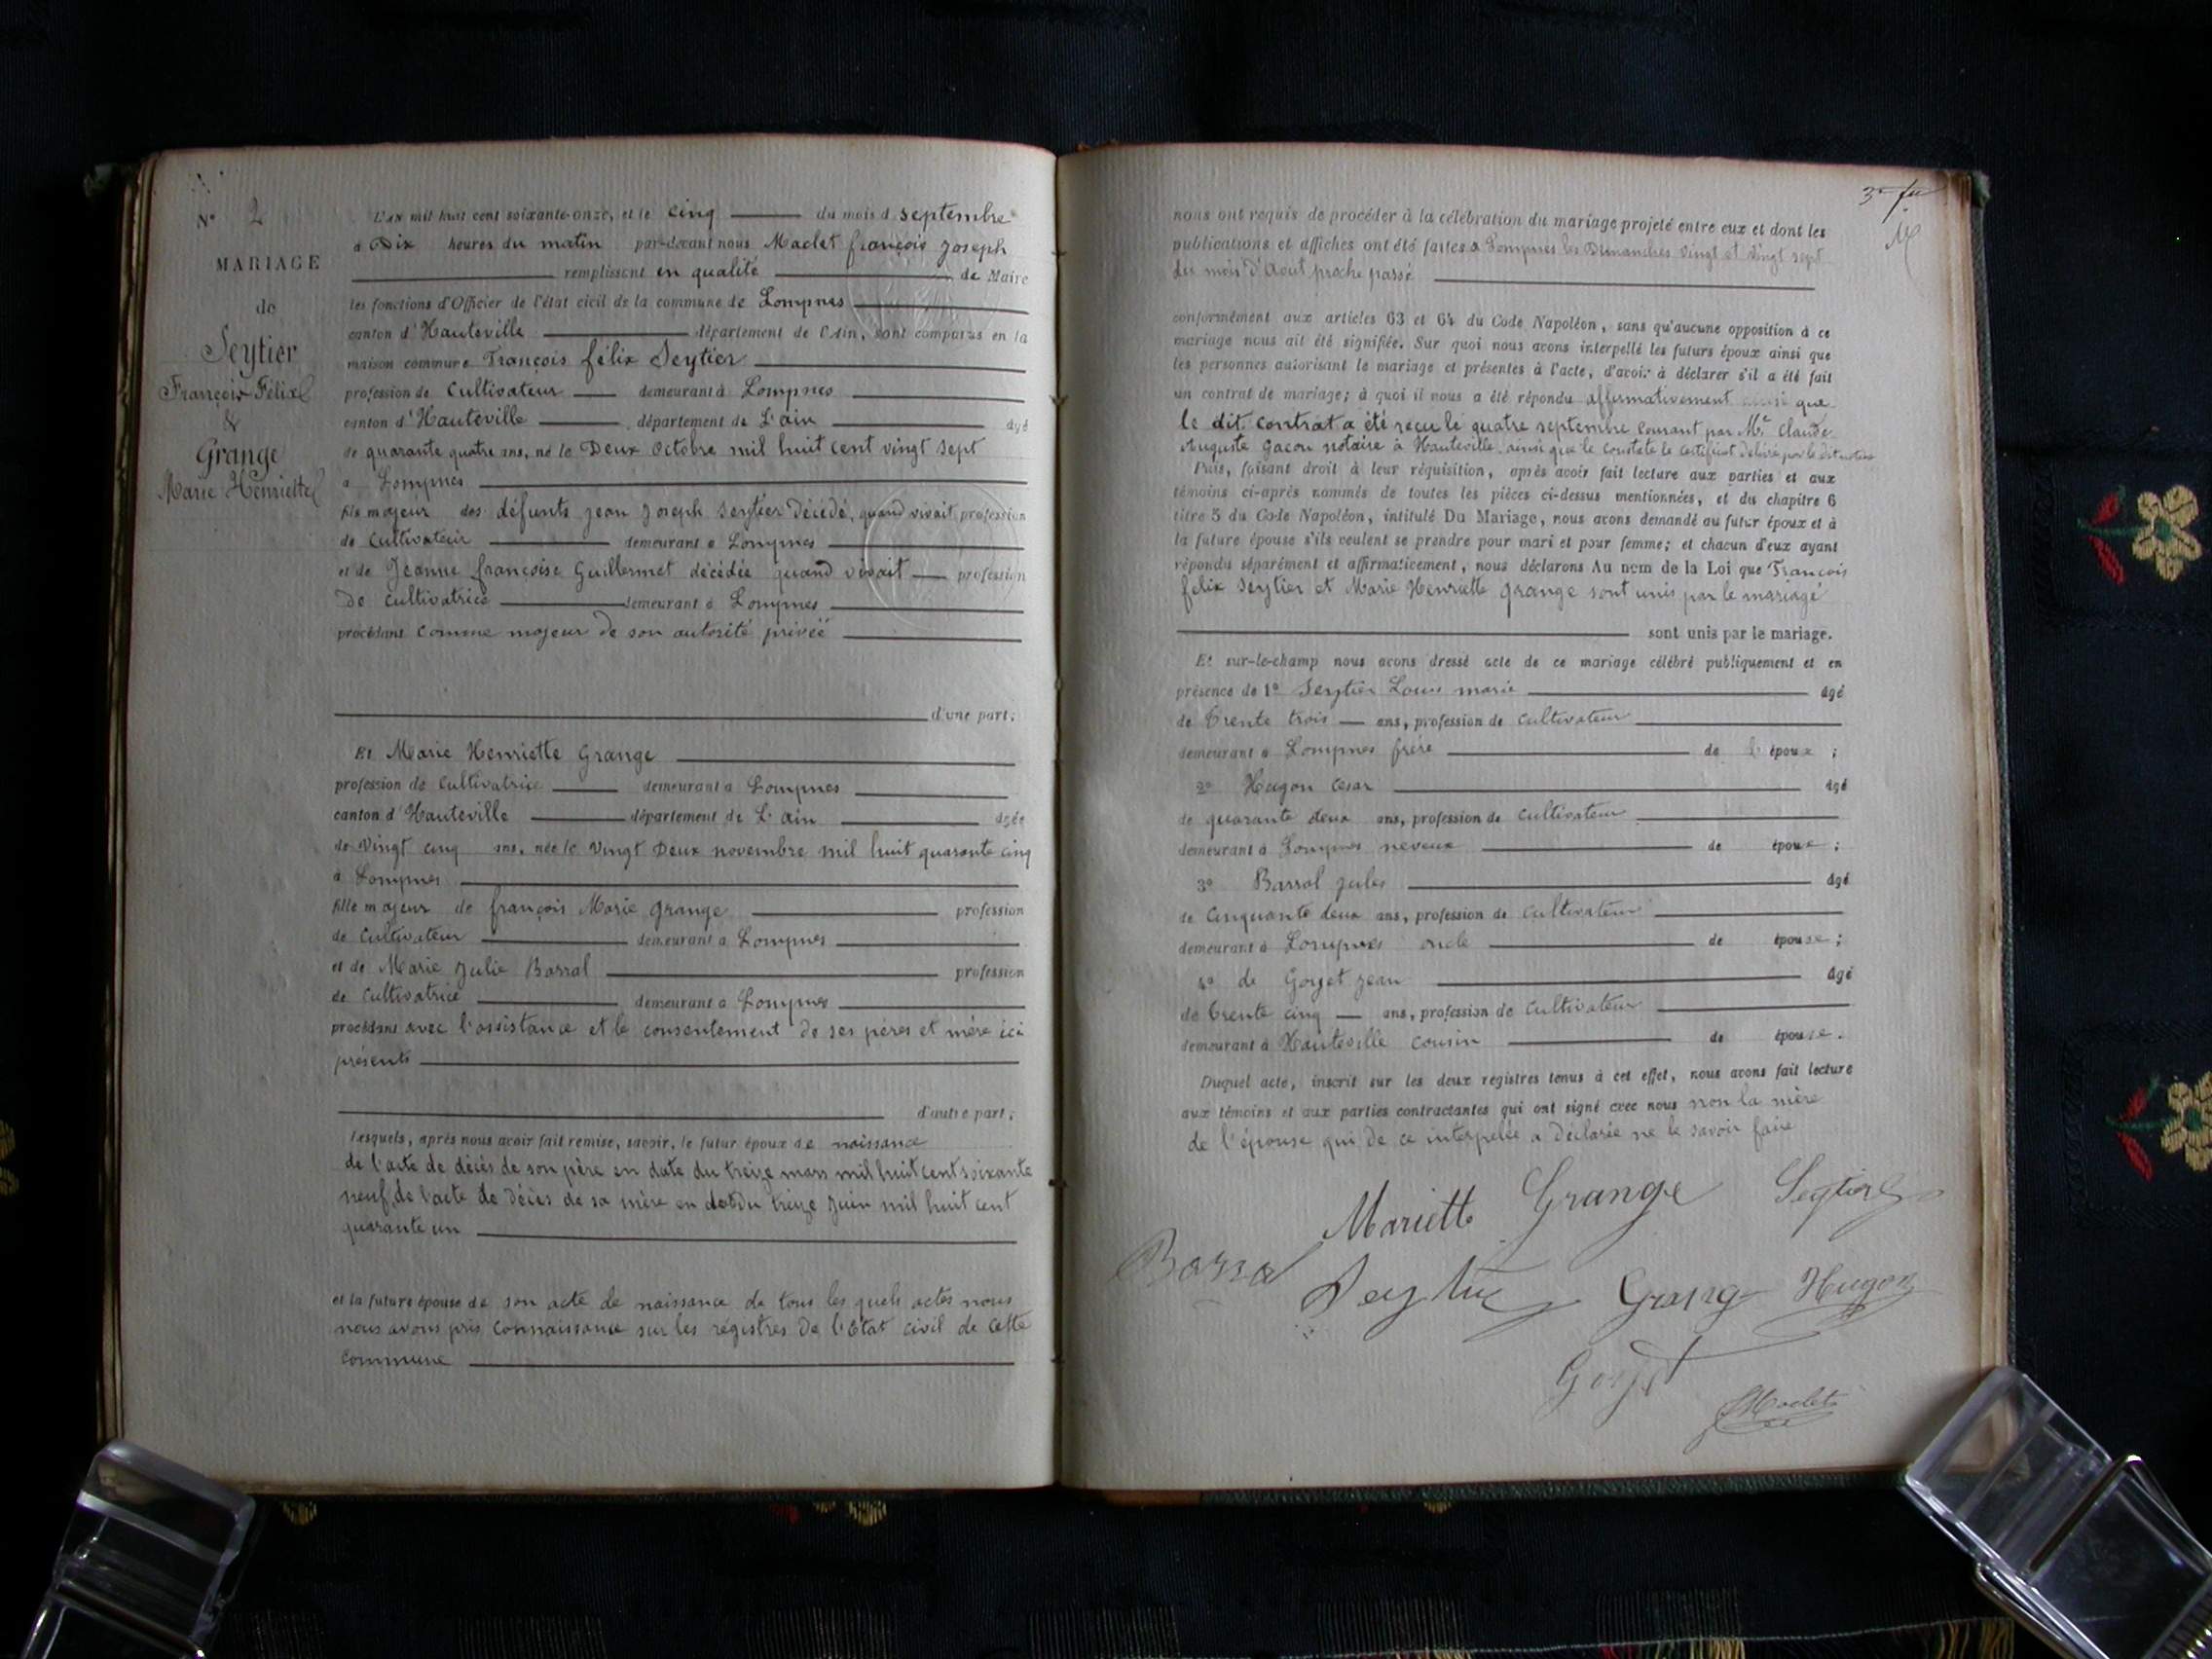 N° 2
MARIAGE
de
Seytier
François Félix
&
Grange
Marie Henriette
L'an mil huit cent soixante-onze, et le cinq du mois d septembre
à Dix heures du matin par-devant nous Maclet françois Joseph
remplissant en qualité de Maire
les fonctions d'Officier de l'état civil de la commune de Lompnes
canton d'Hauteville département de l'Ain, sont comparus en la
maison commune François félix Seytier
profession de Cultivateur demeurant à Lompnes
canton d'Hauteville département de L'ain âgé
de quarante quatre ans, né le Deux Octobre mil huit cent vingt sept
à Lompnes
fils majeur des défunts Jean Joseph Seytier décédé, quand vivait profession
de Cultivateur demeurant à Lompnes
et de Jeanne françoise Guillermet décédée quand vivait profession
De cultivatrice demeurant à Lompnes
procédant comme majeur de son autorité privéé
d'une part;
Et Marie Henriette Grange
profession de Cultivatrice demeurant à Lompnes
canton d'Hauteville département de L'ain âgée
de Vingt cinq ans, née le Vingt Deux novembre mil huit quarante cinq
à Lompnes
fille majeur de françois Marie Grange profession
de Cultivateur demeurant à Lompnes
et de Marie Julie Barral profession
de Cultivatrice demeurant à Lompnes
procédant avec l'assistance et le consentement de ses pères et mère ici
présents
d'autre part;
Lesquels, après nous avoir fait remise, savoir, le futur époux de naissance
de l'acte de décès de son père en date du treize mars mil huit cent soixante
neuf, de l'acte de Décès de sa mère en datdu treize juin mil huit cent
quarante un
et la future épouse de son acte de naissance de tous les quels actes nous
nous avons pris connaissance sur les régistres de l'Etat civil de cette
commune
nous ont requis de procéder à la célébration du mariage projeté entre eux et dont les
publications et affiches ont été faites à Lompnes les Dimanches vingt et vingt sept
du mois d'Aout proche passé
conformément aux articles 63 et 64 du Code Napoléon, sans qu'aucune opposition à ce
mariage nous ait été signifiée. Sur quoi nous avons interpellé les futurs époux ainsi que
les personnes autorisant le mariage et présentes à l'acte, d'avoir à déclarer s'il a été fait
un contrat de mariage; à quoi il nous a été répondu affirmativement que
le dit contrat a été reçu le quatre septembre courant par Me Claude
Auguste Gacon notaire à Hauteville ainsi que le constate le certificat délivré par le dit notaire
Puis, faisant droit à leur réquisition, après avoir fait lecture aux parties et aux
témoins ci-après nommés de toutes les pièces ci-dessus mentionnées, et du chapitre 6
titre 5 du Code Napoléon, intitulé Du Mariage, nous avons demandé au futur époux et à
la future épouse s'ils veulent se prendre pour mari et pour femme; et chacun d'eux ayant
répondu séparément et affirmativement, nous déclarons Au nom de la Loi que François
félix Seytier et Marie Henriette Grange sont unis par le mariage
sont unis par le mariage.
Et sur-le-champ nous avons dressé acte de ce mariage célébré publiquement et en
présence de 1° Seytier Louis marie âgé
de Trente trois ans, profession de cultivateur
demeurant à Lompnes frère de l'époux;
2° Hugon César âgé
de quarante deux ans, profession de Cultivateur
demeurant à Lompnes neveux de époux;
3° Barral Jules âgé
de Cinquante deux ans, profession de Cultivateur
demeurant à Lompnes oncle de épouse;
4° de Goyet Jean âgé
de Trente cinq ans, profession de Cultivateur
demeurant à Hauteville Cousin de épouse.
Duquel acte, inscrit sur les deux registres tenus à cet effet, nous avons fait lecture
aux témoins et aux parties contractantes qui ont signé avec nous non la mère
de l'épouse qui de ce interpelée a déclarée ne le savoir faire
Mariette Grange Seytier
Barral Seytier Grange Hugon
Goyet
Maclet